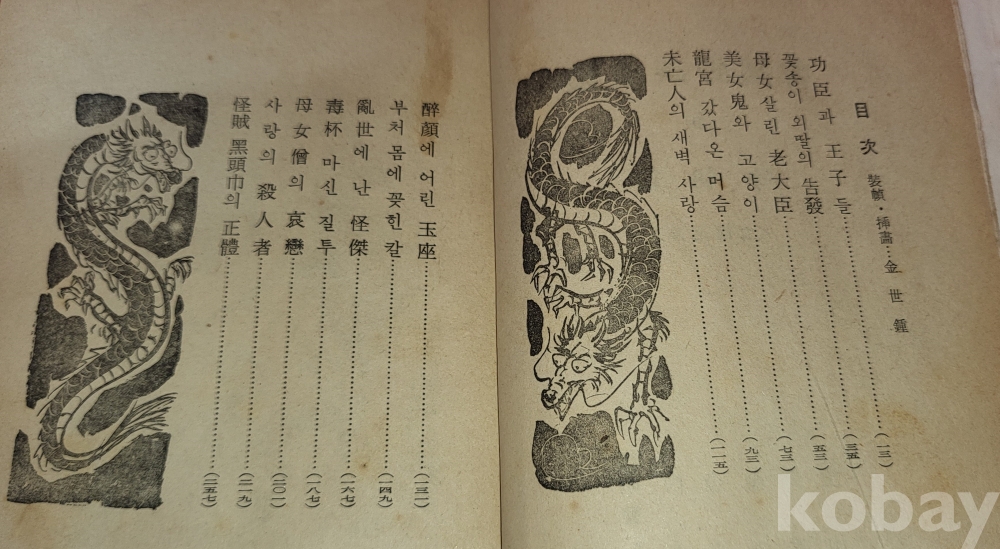 目次
裝幀・揷畵…金世鍾
功臣과 王子들 (一三)
꽃송이 외딸의 告發 (三五)
母女살린 老大臣 (五三)
美女鬼와 고양이 (七三)
龍宮 갔다온 머슴 (九三)
未亡人의 새벽 사랑 (一一五)
醉顔에 어린 玉座 (一三一)
부처 몸에 꽂힌 칼 (一四九)
亂世에 난 怪傑 (一六七)
毒杯 마신 질투 (一八七)
母女僧의 哀戀 (二〇一)
사랑의 殺人者 (二一九)
怪賊 黑頭巾의 正體 (二五七)
kobay